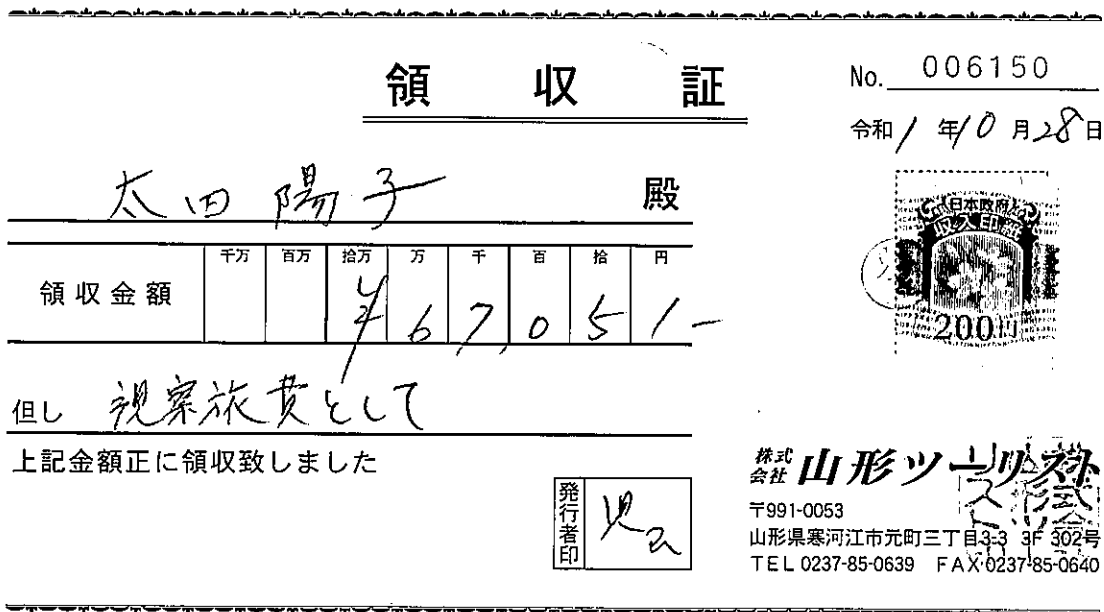 領収証
No. 006150
令和1年10月28日
太田陽子 殿
領収金額 千万 百万 拾万 万 千 百 拾 円
¥67,051-
但し 視察旅費として
上記金額正に領収致しました
日本政府
収入印紙
200円
発行者印
株式会社 山形ツーリスト
〒991-0053
山形県寒河江市元町三丁目3-3 3F 302号
TEL 0237-85-0639 FAX 0237-85-0640